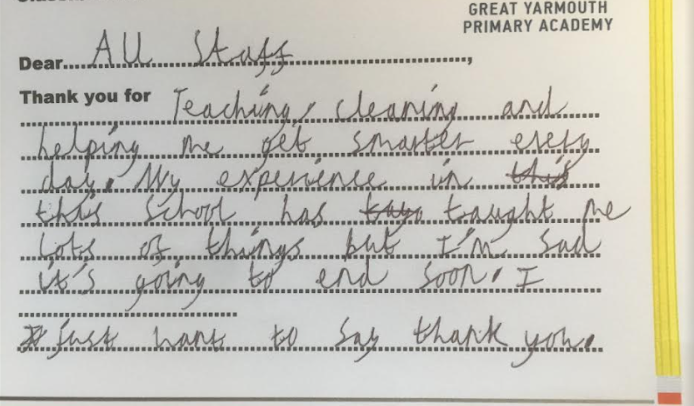 GREAT YARMOUTH
PRIMARY ACADEMY
Dear All Staff,
Thank you for Teaching, cleaning and
helping me get smarter every
day. My experience in this
this School has taught me
lots of things but I'm sad
it's going to end soon. I
just want to say thank you.